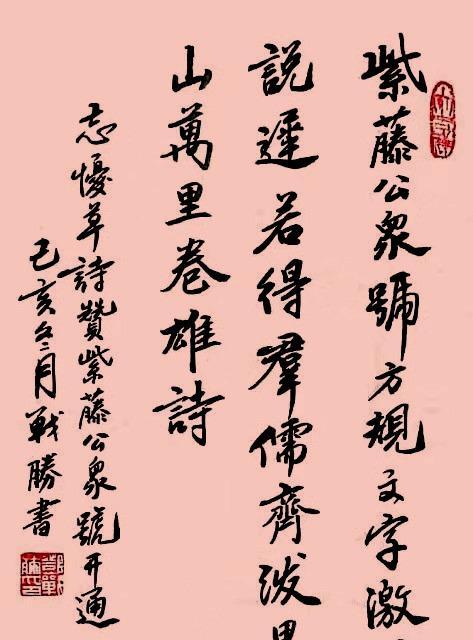 紫藤公眾號方現文字激
説遲若得羣儒齊潑
山萬里卷雄詩
忘懮草詩贊紫藤公眾號开通
己亥三月戰勝書